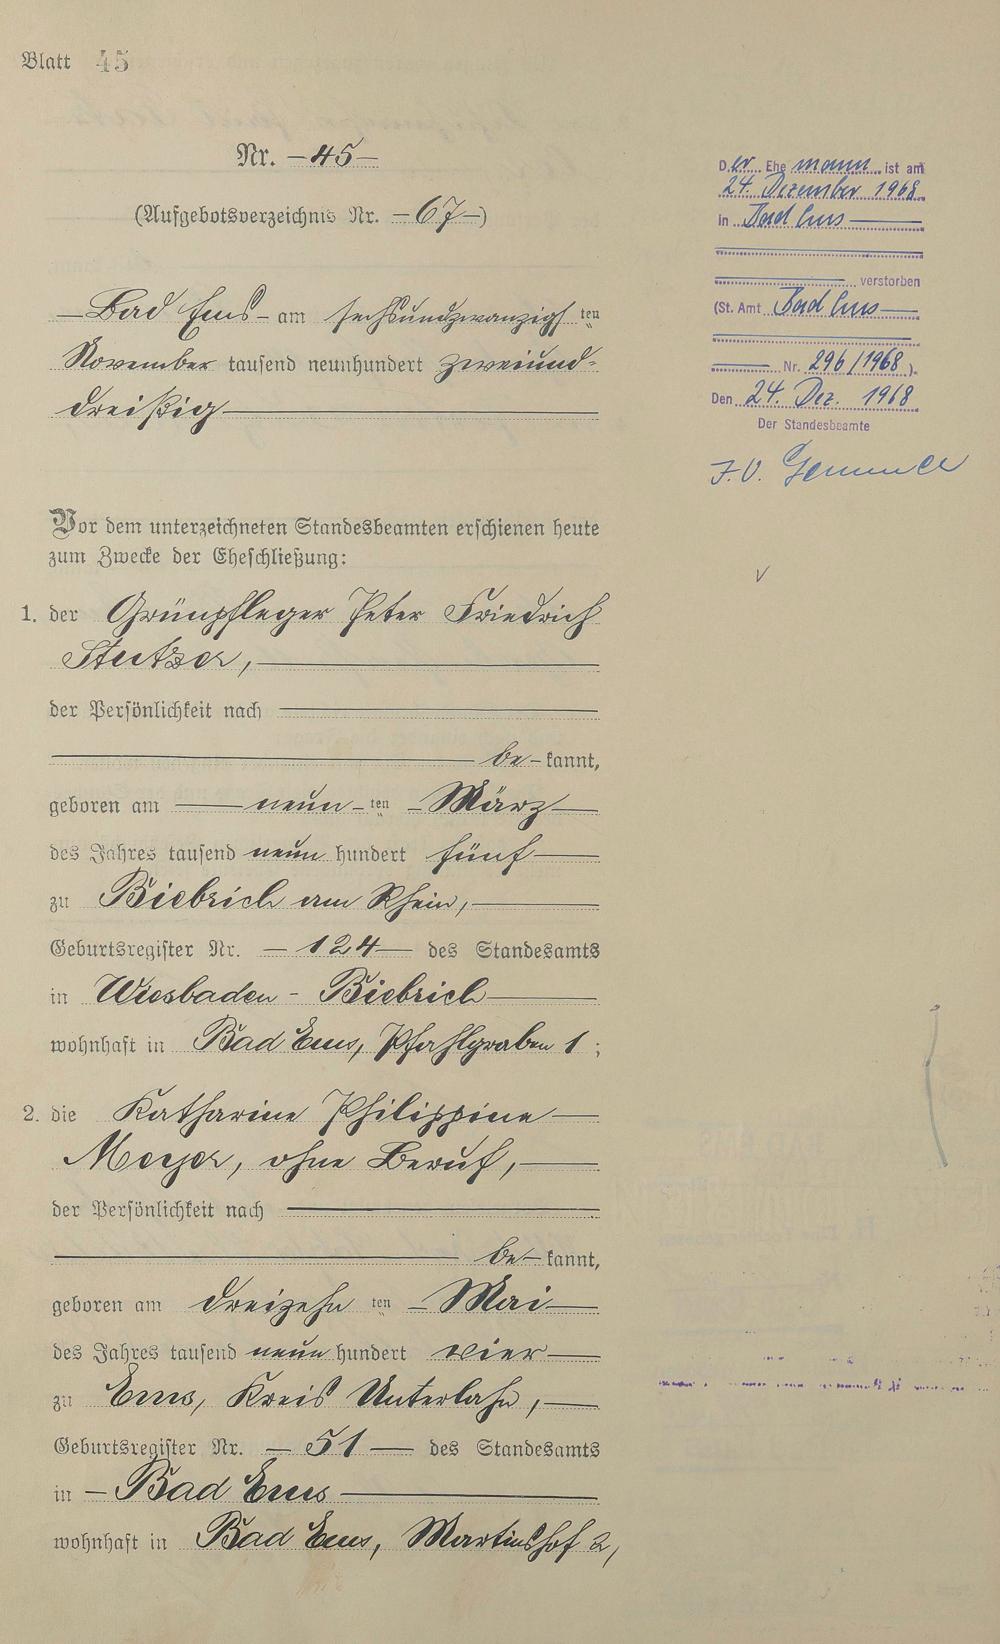 Blatt 45
Nr. —45—
(Aufgebotsverzeichnis Nr. —67—)
—Bad Ems— am sechsundzwanzigsten
November tausend neunhundert zweiund-
dreißig
Vor dem unterzeichneten Standesbeamten erschienen heute
zum Zwecke der Eheschließung:
1. der Grünpfleger Peter Friedrich
Stutzer,
der Persönlichkeit nach
be-kannt,
geboren am neun-ten März
des Jahres tausend neun hundert fünf
zu Biebrich am Rhein,
Geburtsregister Nr. —124— des Standesamts
in Wiesbaden-Biebrich
wohnhaft in Bad Ems, Pfahlgraben 1;
2. die Katharine Philippine
Meyer, ohne Beruf,
der Persönlichkeit nach
be-kannt,
geboren am dreizehnten Mai
des Jahres tausend neun hundert vier
zu Ems, Kreis Unterlahn,
Geburtsregister Nr. —51— des Standesamts
in —Bad Ems
wohnhaft in Bad Ems, Martinshof 2,
Der Ehemann ist am
24. Dezember 1968
in Bad Ems
verstorben
(St. Amt Bad Ems
Nr. 296/1968).
Den 24. Dez. 1968
Der Standesbeamte
I.V.